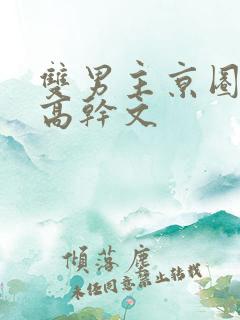 雙男主京圈
高幹文
傾落塵
未經同意禁止轉載